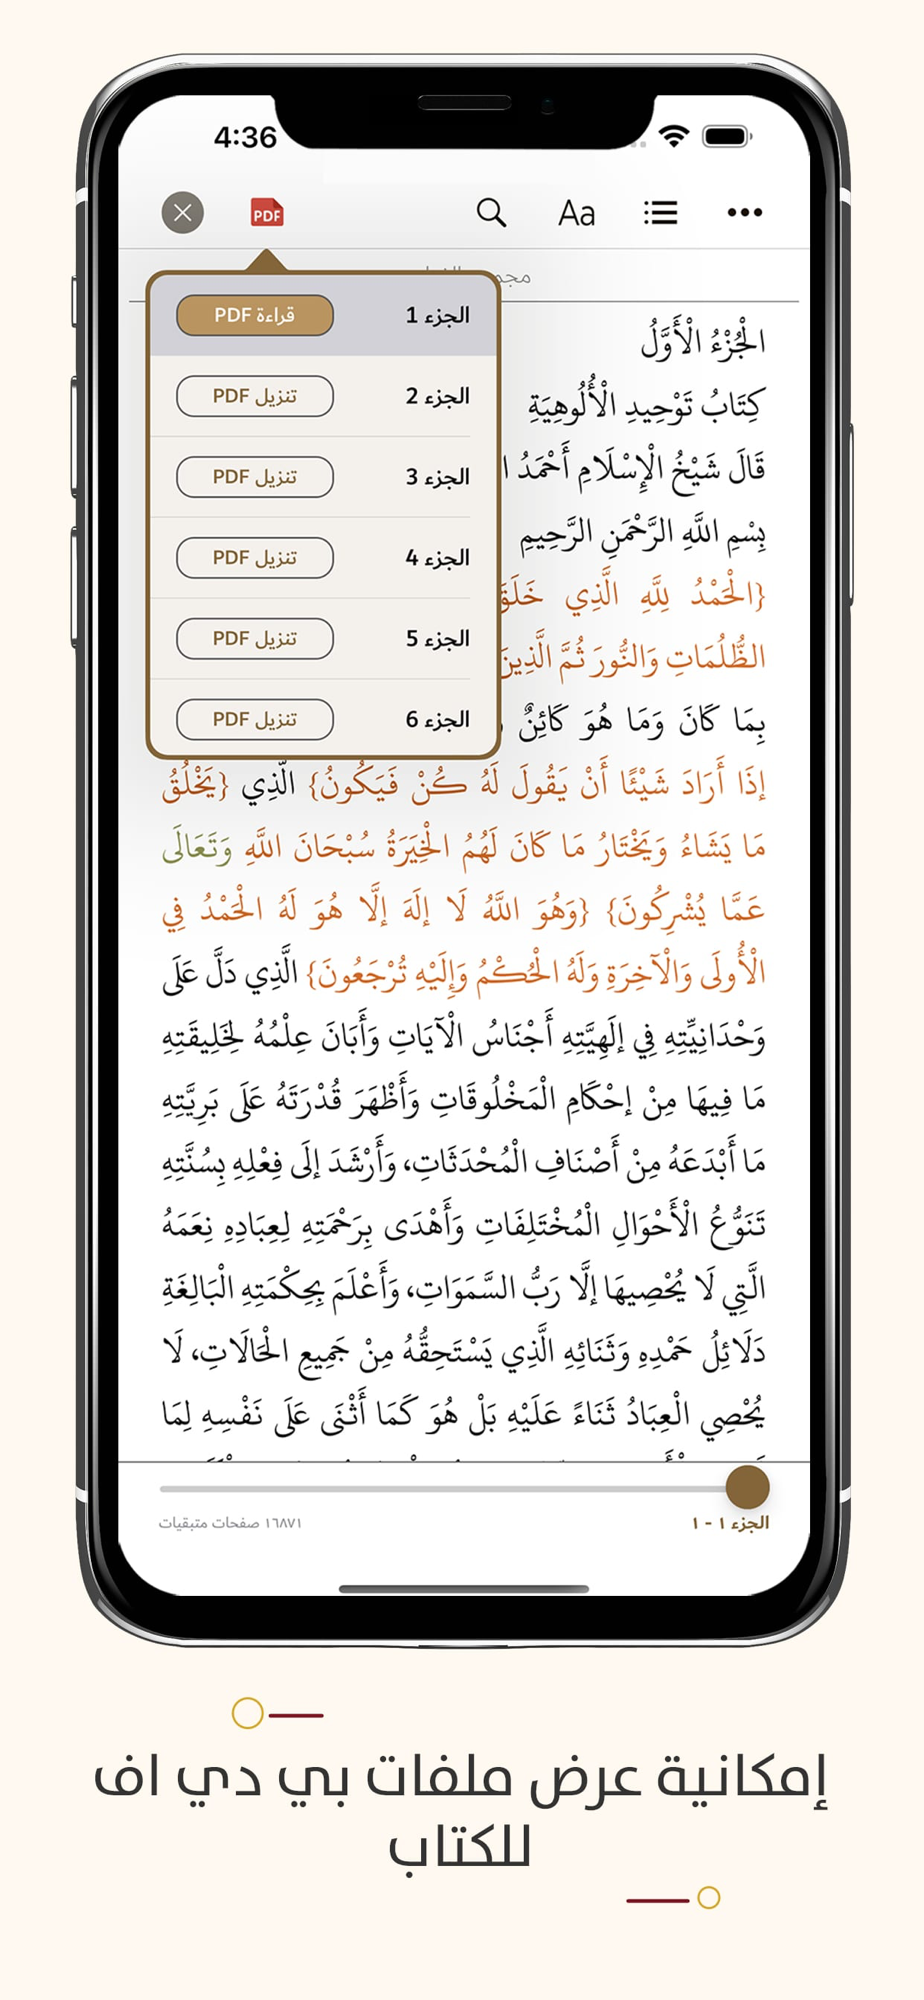 4:36
PDF
Aa
الجزء 1
قراءة PDF
الجزء 2
تنزيل PDF
الجزء 3
تنزيل PDF
الجزء 4
تنزيل PDF
الجزء 5
تنزيل PDF
الجزء 6
تنزيل PDF
الْجُزْءُ الْأَوَّلُ
كِتَابُ تَوْحِيدِ الْأُلُوهِيَّةِ
قَالَ شَيْخُ الْإِسْلَامِ أَحْمَدُ
بِسْمِ اللَّهِ الرَّحْمَنِ الرَّحِيمِ
{الْحَمْدُ لِلَّهِ الَّذِي خَلَقَ
الظُّلُمَاتِ وَالنُّورَ ثُمَّ الَّذِينَ
بِمَا كَانَ وَمَا هُوَ كَائِنٌ
إذَا أَرَادَ شَيْئًا أَنْ يَقُولَ لَهُ كُنْ فَيَكُونُ} الَّذِي {يَخْلُقُ
مَا يَشَاءُ وَيَخْتَارُ مَا كَانَ لَهُمُ الْخِيَرَةُ سُبْحَانَ اللَّهِ وَتَعَالَى
عَمَّا يُشْرِكُونَ} {وَهُوَ اللَّهُ لَا إلَهَ إلَّا هُوَ لَهُ الْحَمْدُ فِي
الْأُولَى وَالْآخِرَةِ وَلَهُ الْحُكْمُ وَإِلَيْهِ تُرْجَعُونَ} الَّذِي دَلَّ عَلَى
وَحْدَانِيِّتِهِ فِي إلَهِيَّتِهِ أَجْنَاسُ الْآيَاتِ وَأَبَانَ عِلْمُهُ لِخَلِيقَتِهِ
مَا فِيهَا مِنْ إحْكَامِ الْمَخْلُوقَاتِ وَأَظْهَرَ قُدْرَتَهُ عَلَى بَرِيَّتِهِ
مَا أَبْدَعَهُ مِنْ أَصْنَافِ الْمُحْدَثَاتِ، وَأَرْشَدَ إلَى فِعْلِهِ بِسُنَّتِهِ
تَنَوُّعُ الْأَحْوَالِ الْمُخْتَلِفَاتِ وَأَهْدَى بِرَحْمَتِهِ لِعِبَادِهِ نِعَمَهُ
الَّتِي لَا يُحْصِيهَا إلَّا رَبُّ السَّمَوَاتِ، وَأَعْلَمَ بِحِكْمَتِهِ الْبَالِغَةِ
دَلَائِلُ حَمْدِهِ وَثَنَائِهِ الَّذِي يَسْتَحِقُّهُ مِنْ جَمِيعِ الْحَالَاتِ، لَا
يُحْصِي الْعِبَادُ ثَنَاءً عَلَيْهِ بَلْ هُوَ كَمَا أَثْنَى عَلَى نَفْسِهِ لِمَا
الجزء ١ - ١
١٦٨٧١ صفحات متبقيات
إمكانية عرض ملفات بي دي اف
للكتاب